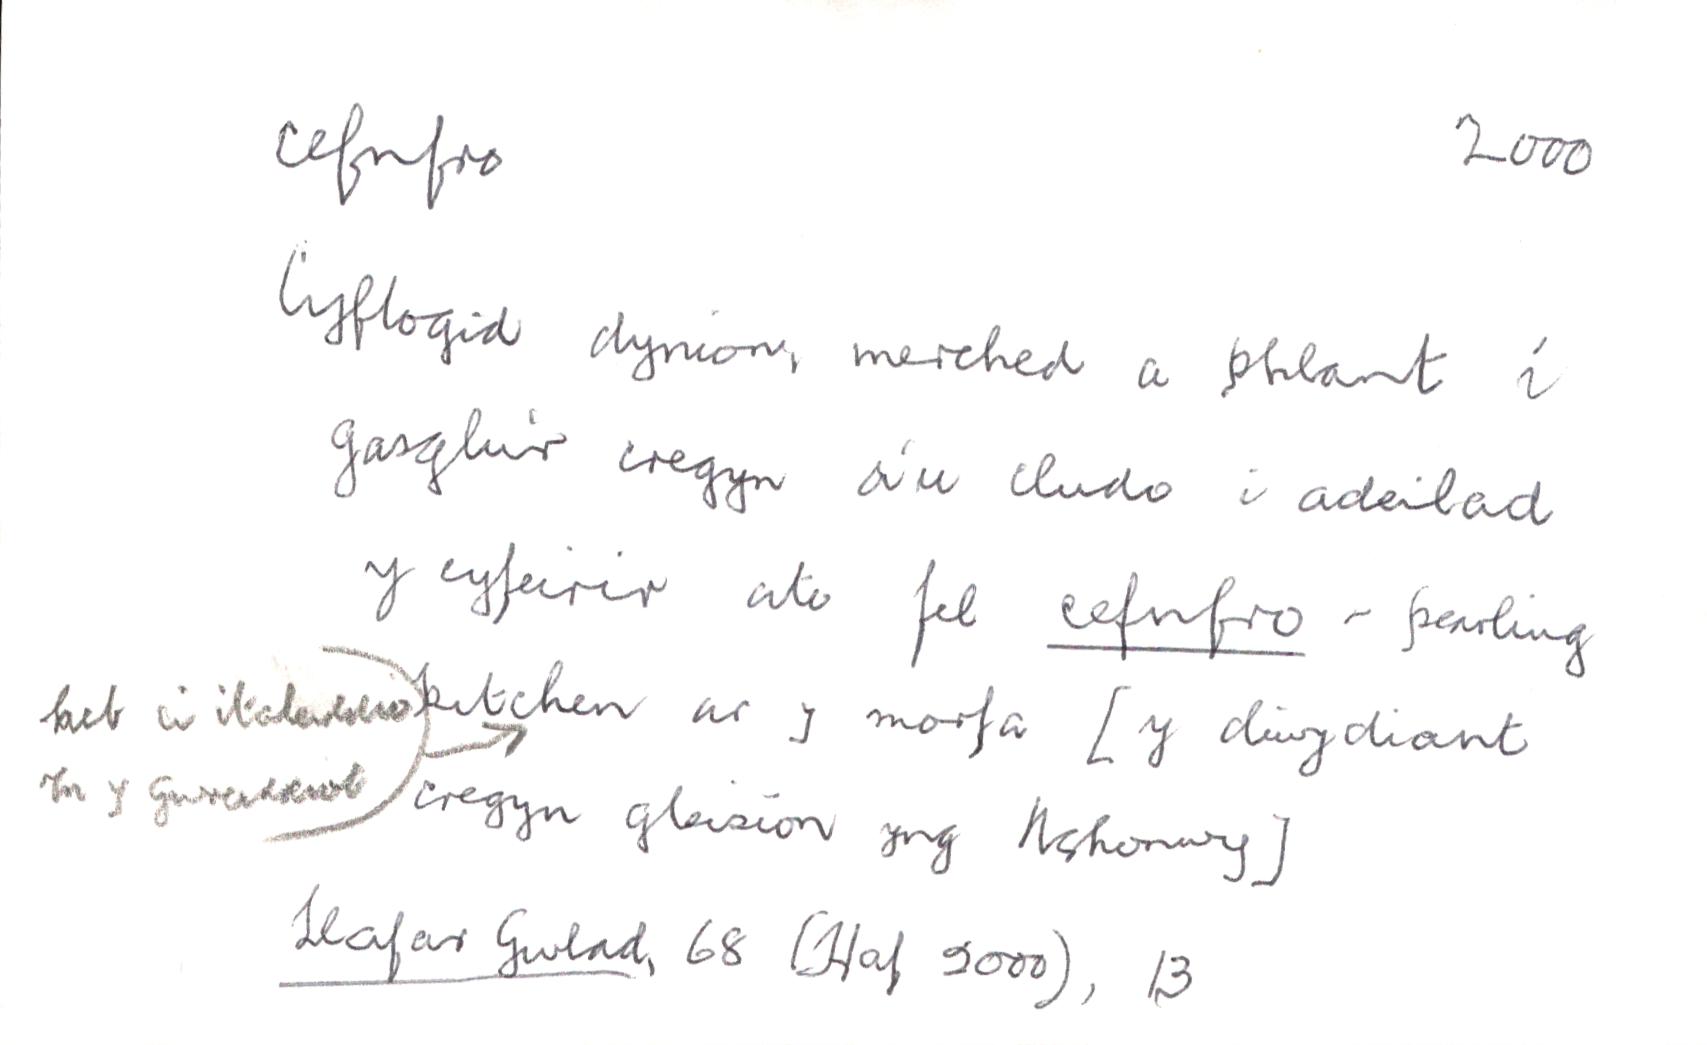 cefnfro 2000
Cyflogid dynion, merched a phlant i
gasglu'r cregyn a'u cludo i adeilad
y cyfeirir ato fel cefnfro - pearling
kitchen ar y morfa [y diwydiant
heb ei italeiddio
yn y gwreiddiol
cregyn gleision yng Nghonwy]
Llafar Gwlad, 68 (Haf 2000), 13